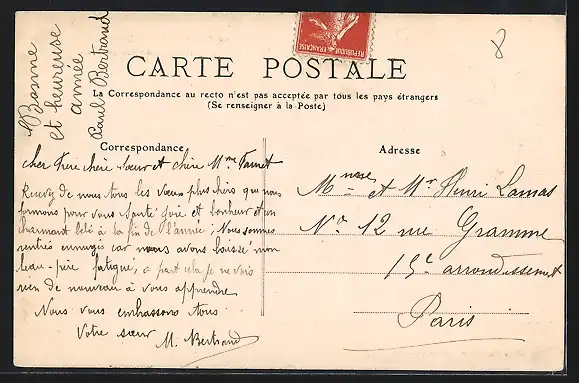 Bonne
et heureuse
année
Paul Bertrand
REPUBLIQUE FRANÇAISE
8
CARTE POSTALE
La Correspondance au recto n'est pas acceptée par tous les pays étrangers
(Se renseigner à la Poste)
Correspondance
cher Frère chère Sœur et chère Mme
Recevez de nous tous les vœux plus chers que nous
formons pour vous Santé joie et bonheur et un
charmant bébé à la fin de l'année ; Nous sommes
rentrés ennuyés car nous avons laissé mon
beau-père fatigué, a part cela je ne vois
rien de nouveau à vous apprendre
Nous vous embrassons tous
Votre sœur M. Bertrand
Adresse
et Mr Henri Lamas
No 12 rue Gramme
15e arrondissement
Paris